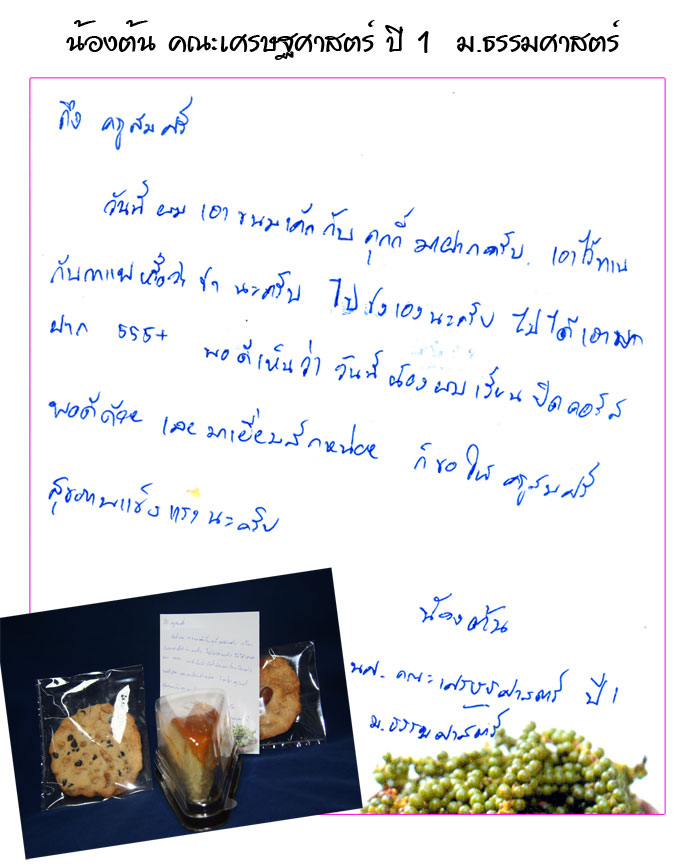 น้องต้น คณะเศรษฐศาสตร์ ปี 1 ม.ธรรมศาสตร์
ถึง ครูสมศรี
วันนี้ ผม เอา ขนมเค้ก กับ คุกกี้ มาฝากครับ. เอาไว้ทาน
กับกาแฟ หรือว่า ชา นะครับ ไป เองนะครับ ไม่ได้เอา
ฝาก 555+ พอดีเห็นว่า วันนี้ น้องผม เรียน ปิดคอร์ส
พอดีด้วย เลย มาเยี่ยมสักหน่อย ก็ขอให้ ครูสมศรี
สุขภาพแข็งแรง นะครับ
น้องต้น
นศ. คณะเศรษฐศาสตร์ ปี 1
ม.ธรรมศาสตร์